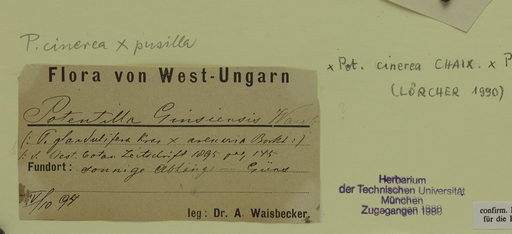 P. cinerea x pusilla
Flora von West-Ungarn
Potentilla Ginsiensis
(: P. glandulifera Kras. x arenaria Borkh :)
Oest. botan. Zeitschrift 1895 pag 145
Fundort: sonnige Abhänge Güns
V/10 94
leg: Dr. A. Waisbecker.
x Pot. cinerea CHAIX. x P
(LÖRCHER 1990)
Herbarium
der Technischen Universität
München
Zugegangen 1980
confirm.
für die